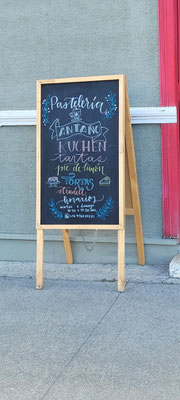 Pastelería
ANTAÑO
KUCHEN
tartas
pie de limón
TORTAS
strudell
horarios
martes a domingo